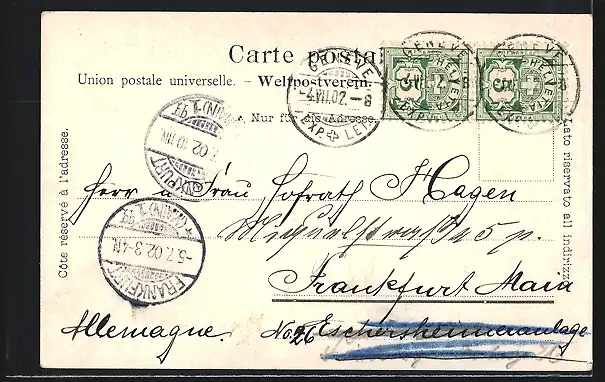 Carte postale
Union postale universelle. – Weltpostverein.
Nur für die Adresse.
Côte réservé à l'adresse.
Lato riservato all indirizzo
GENÈVE
-4.VII.02.-8
EXP. LETT.
GENÈVE
5 HELVETIA
EXP. LETT.
GENÈVE
5 HELVETIA
EXP. LETT.
FRANKFURT
(MAIN) 1
FRANKFURT
(MAIN) 1
-5.7.02.3-4N.
Herr & Frau Hofrath Hagen
45 p.
Frankfurt Main
Allemagne. No. 26 Eschersheimeranlage